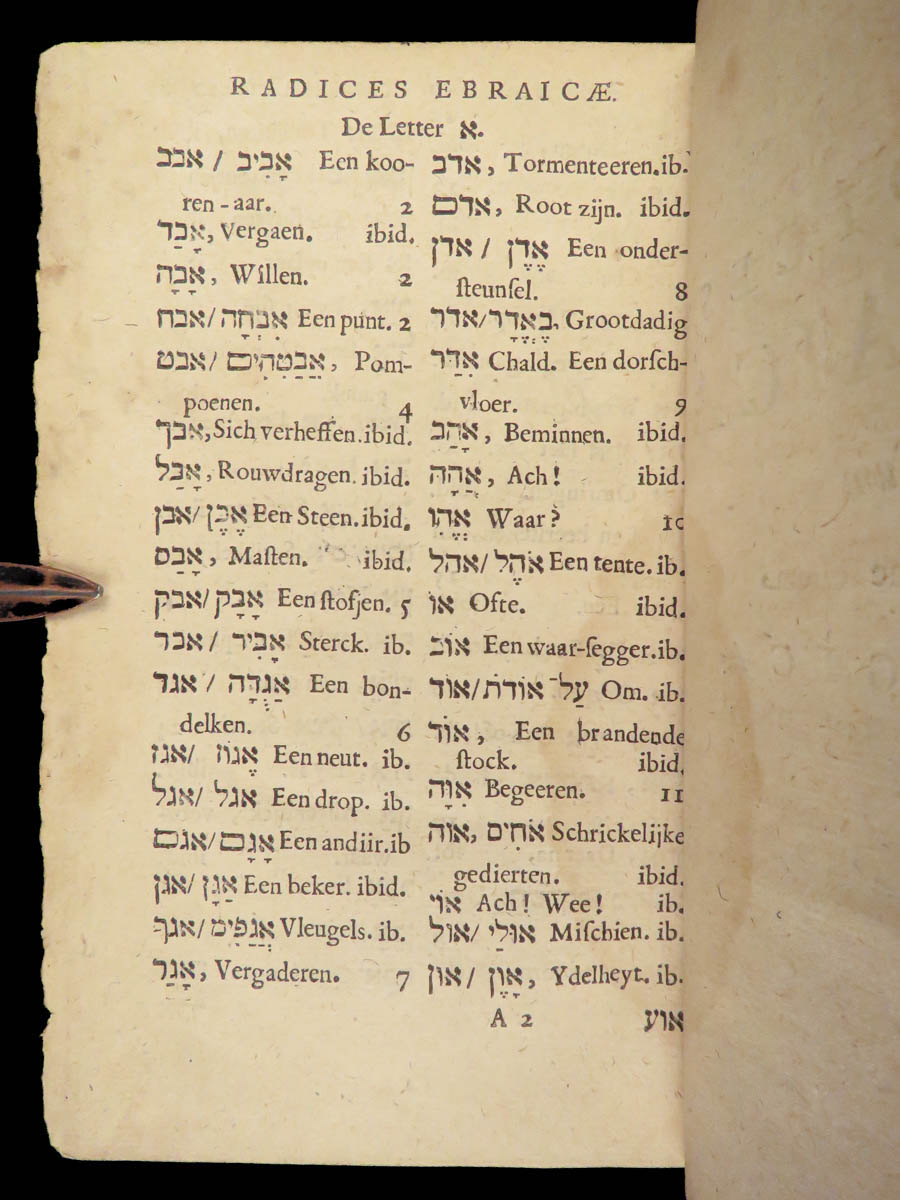 RADICES EBRAICÆ.
De Letter א.
אבב / אָבִיב Een koo-
ren-aar. 2
אָבַד, Vergaen. ibid.
אָבָה, Willen. 2
אבח/אִבְחָה Een punt. 2
אבט/אֲבַטִּחִים, Pom-
poenen. 4
אבך, Sich verheffen. ibid.
אָבַל, Rouwdragen. ibid.
אבן/אֶבֶן Een Steen. ibid.
אָבַס, Maſten. ibid.
אבק/אָבָק Een ſtofjen. 5
אבר/ אָבִיר Sterck. ib.
אגד / אֲגֻדָּה Een bon-
delken. 6
אגז/ אֱגוֹז Een neut. ib.
אגל/ אגל Een drop. ib.
אגם/אָגָם Een andiir. ib
אגן/אַגָּן Een beker. ibid.
אגף/אֲגַפִּים Vleugels. ib.
אָגַר, Vergaderen. 7
אדב, Tormenteeren. ib.
אדם, Root zijn. ibid.
אדן / אֶדֶן Een onder-
ſteunſel. 8
אדר/בְּאֶדֶר, Grootdadig
אִדַּר Chald. Een dorſch-
vloer. 9
אָהַב, Beminnen. ibid.
אֲהָהּ, Ach! ibid.
אֱהִי Waar? 10
אהל/אֹהֶל Een tente. ib.
אוֹ Ofte. ibid.
אוֹב Een waar-ſegger. ib.
אוד/עַל־אוֹדֹת Om. ib.
אוּד, Een brandende
ſtock. ibid.
אִוָּה Begeeren. 11
אוה, אֹחִים Schrickelijke
gedierten. ibid.
אוֹי Ach! Wee! ib.
אול/ אוּלַי Miſchien. ib.
און/ אָוֶן, Ydelheyt. ib.
A 2 אוע